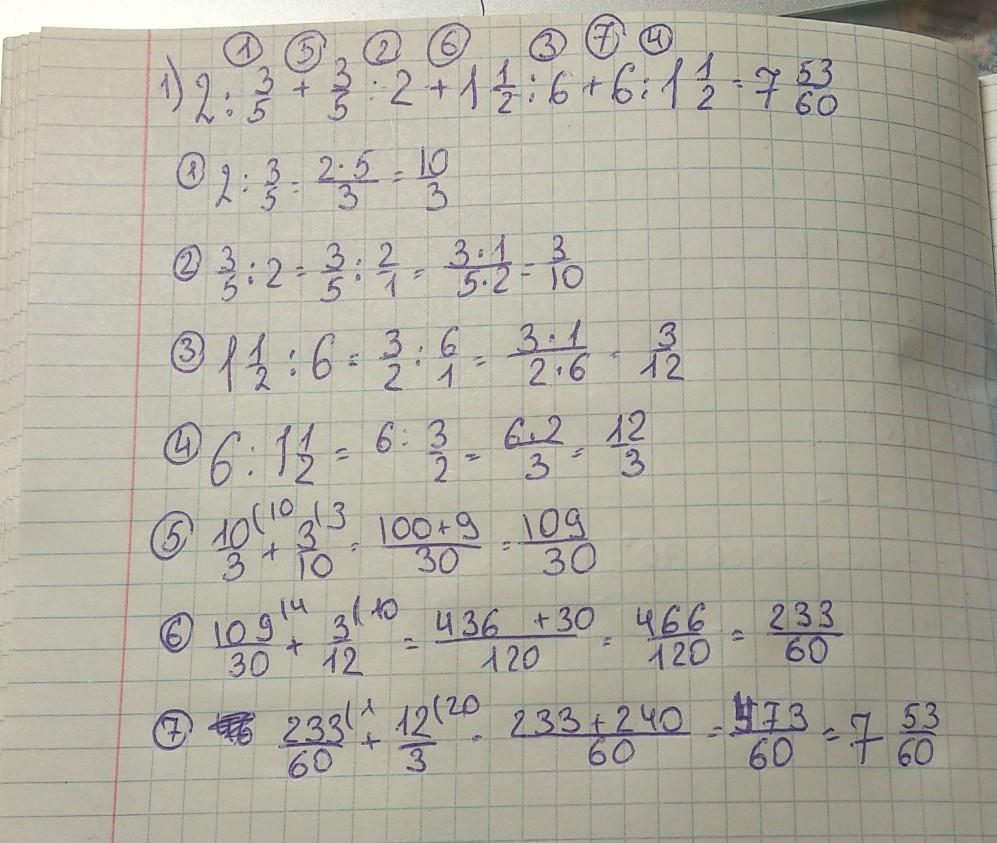 ① ⑤ ② ⑥ ③ ⑦ ④
1) 2 : 3/5 + 3/5 : 2 + 1 1/2 : 6 + 6 : 1 1/2 = 7 53/60
① 2 : 3/5 = 2·5/3 = 10/3
② 3/5 : 2 = 3/5 : 2/1 = 3·1/5·2 = 3/10
③ 1 1/2 : 6 = 3/2 : 6/1 = 3·1/2·6 = 3/12
④ 6 : 1 1/2 = 6 : 3/2 = 6·2/3 = 12/3
⑤ 10/3 (10 + 3/10 (3 = 100+9/30 = 109/30
⑥ 109/30 (4 + 3/12 (10 = 436 +30/120 = 466/120 = 233/60
⑦ 233/60 (1 + 12/3 (20 = 233+240/60 = 473/60 = 7 53/60